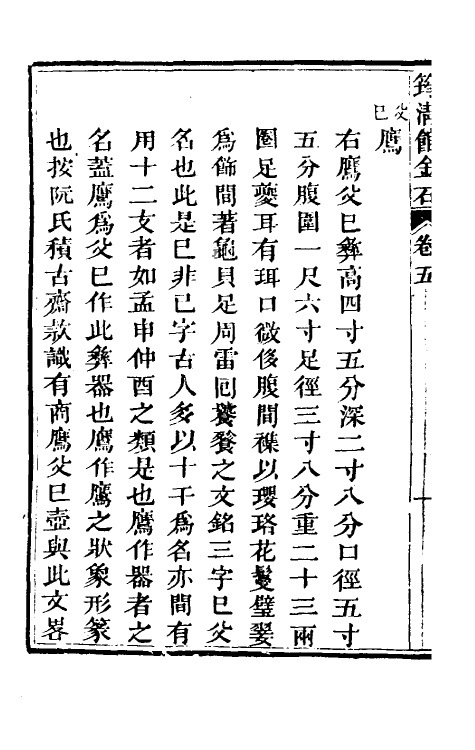 筠清館金石 卷五 一
父巳鷹
右鷹父巳彝高四寸五分深二寸八分口徑五寸
五分腹圍一尺六寸足徑三寸八分重二十三兩
圈足夔耳有珥口微侈腹間襍以瓔珞花鬘璧翣
爲飾間著龜貝足周雷囘饕餮之文銘三字巳父
名也此是巳非己字古人多以十干爲名亦間有
用十二支者如孟申仲酉之類是也鷹作器者之
名蓋鷹爲父巳作此彝器也鷹作鷹之狀象形篆
也按阮氏積古齋款識有商鷹父巳壺與此文畧